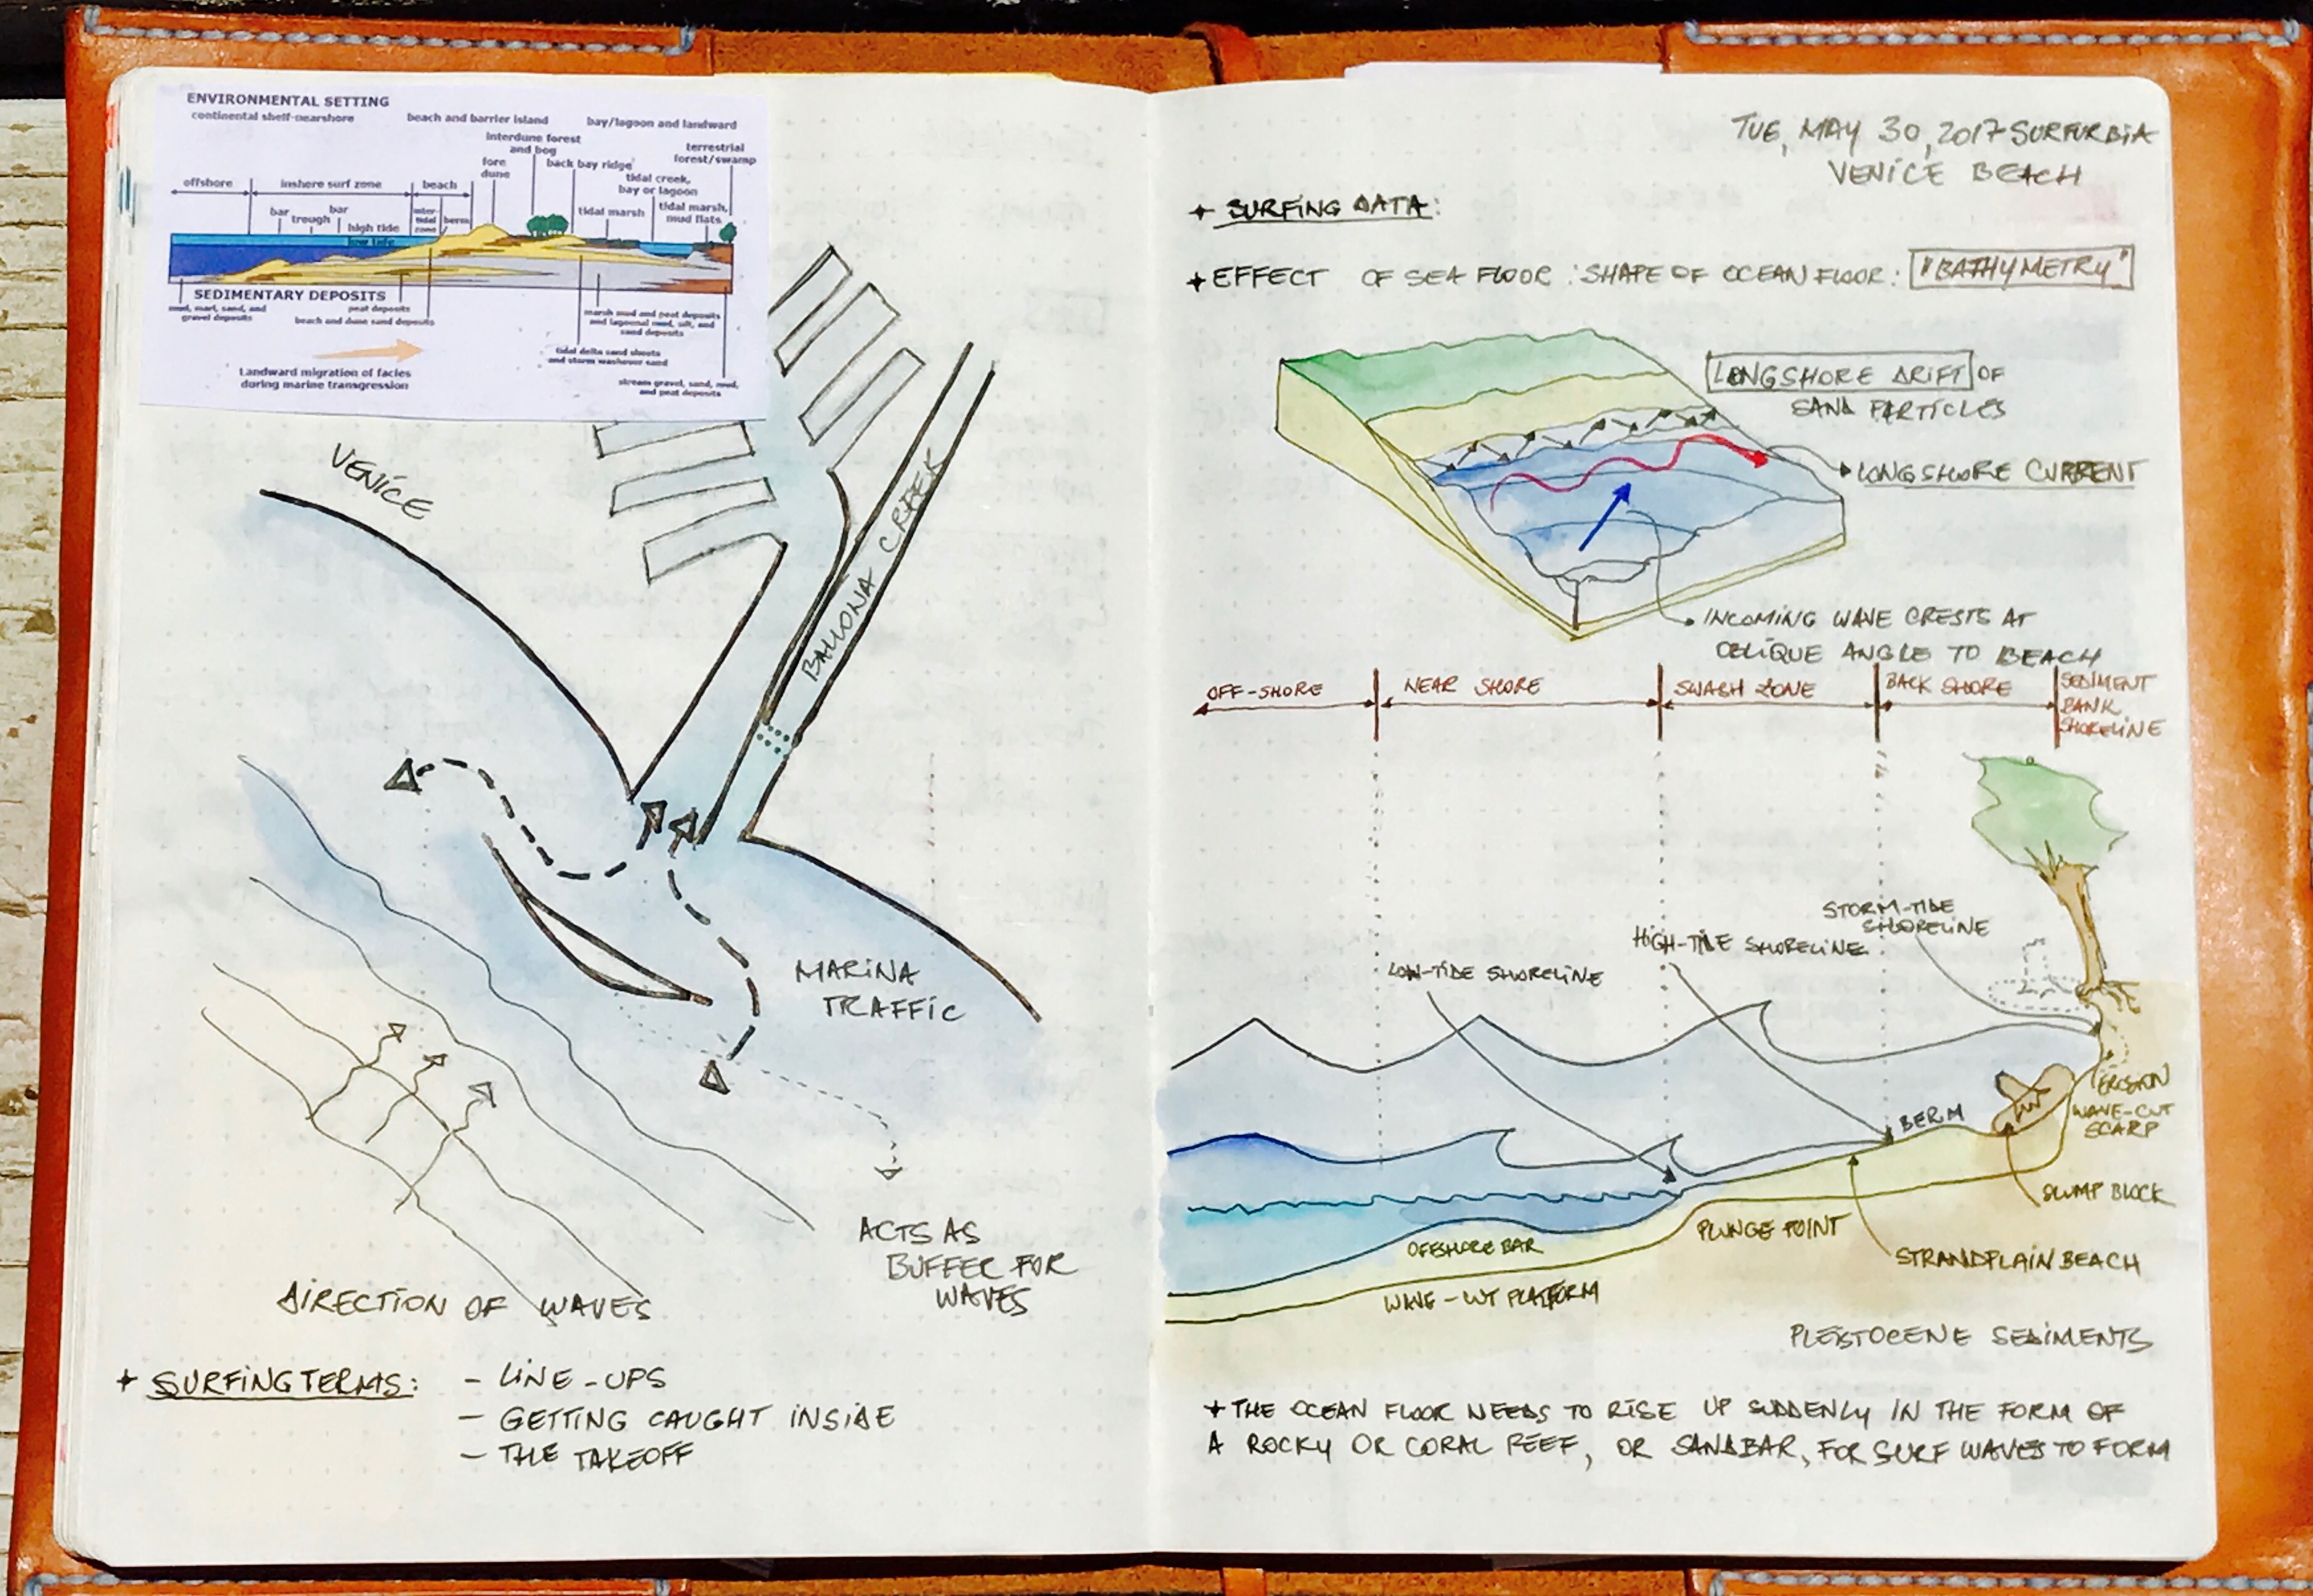 ENVIRONMENTAL SETTING
continental shelf-nearshore
beach and barrier island
bay/lagoon and landward
interdune forest
and bog
terrestrial
forest/swamp
fore
dune
back bay ridge
tidal creek,
bay or lagoon
offshore
inshore surf zone
beach
bar
trough
bar
high tide
low tide
inter
tidal
zone
berm
tidal marsh
tidal marsh,
mud flats
SEDIMENTARY DEPOSITS
mud, marl, sand, and
gravel deposits
peat deposits
beach and dune sand deposits
marsh mud and peat deposits
and lagoonal mud, silt, and
sand deposits
tidal delta sand sheets
and storm washover sand
Landward migration of facies
during marine transgression
stream gravel, sand, mud,
and peat deposits
VENICE
BALLONA CREEK
MARINA
TRAFFIC
ACTS AS
BUFFER FOR
WAVES
DIRECTION OF WAVES
+ SURFING TERMS:
- LINE-UPS
- GETTING CAUGHT INSIDE
- THE TAKEOFF
TUE, MAY 30, 2017 SURFURBIA
VENICE BEACH
+ SURFING DATA:
+ EFFECT OF SEA FLOOR : SHAPE OF OCEAN FLOOR: "BATHYMETRY"
LONGSHORE DRIFT OF
SAND PARTICLES
LONGSHORE CURRENT
INCOMING WAVE CRESTS AT
OBLIQUE ANGLE TO BEACH
OFF-SHORE
NEAR SHORE
SWASH ZONE
BACK SHORE
SEDIMENT
BANK
SHORELINE
STORM-TIDE
SHORELINE
HIGH-TIDE SHORELINE
LOW-TIDE SHORELINE
BERM
EROSION
WAVE-CUT
SCARP
SLUMP BLOCK
PLUNGE POINT
OFFSHORE BAR
STRANDPLAIN BEACH
WAVE-CUT PLATFORM
PLEISTOCENE SEDIMENTS
+ THE OCEAN FLOOR NEEDS TO RISE UP SUDDENLY IN THE FORM OF
A ROCKY OR CORAL REEF, OR SANDBAR, FOR SURF WAVES TO FORM